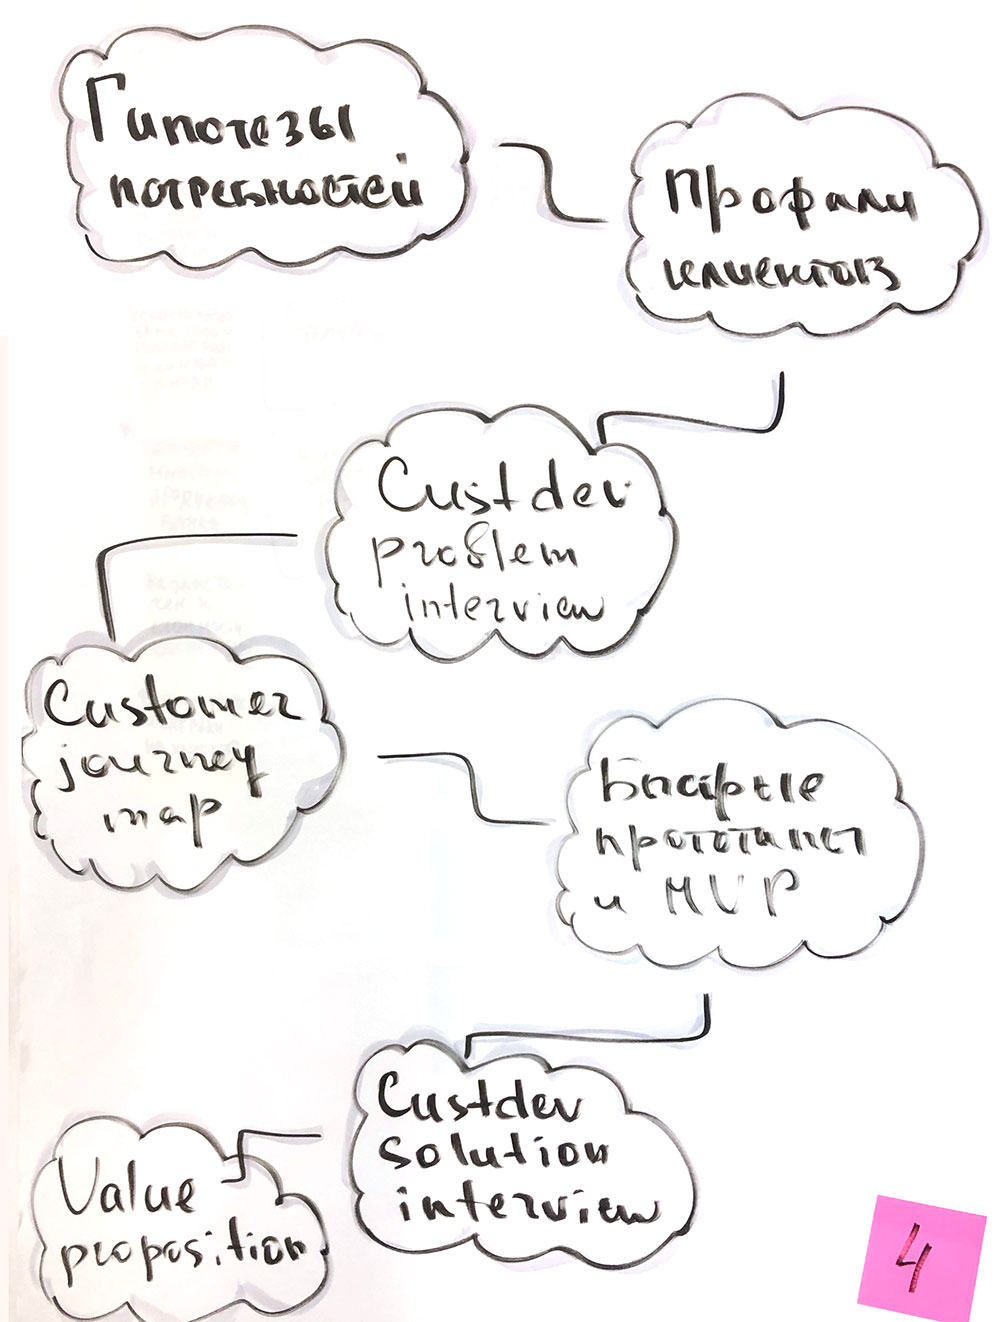 Гипотезы
потребностей
Профили
клиентов
Custdev
problem
interview
Customer
journey
map
Быстрые
прототипы
и MVP
Custdev
solution
interview
Value
proposition
4